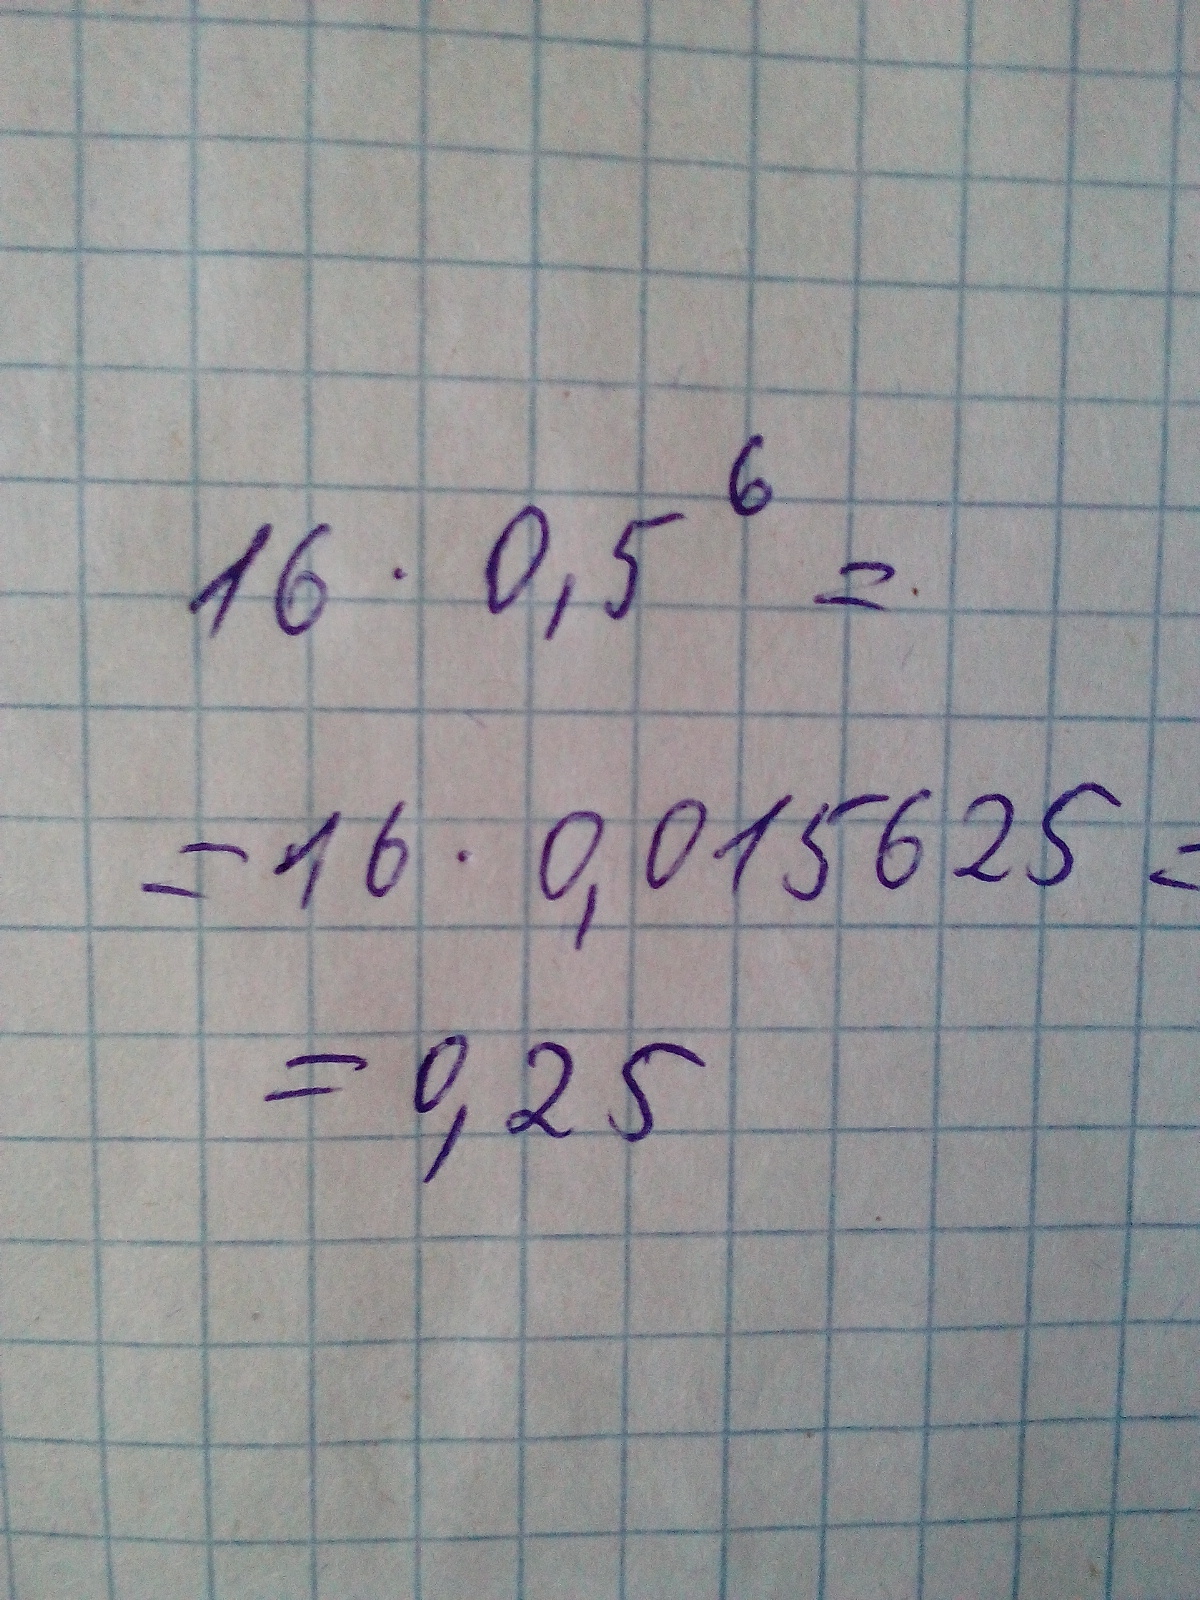 16 · 0,5⁶ =
= 16 · 0,015625 =
= 0,25